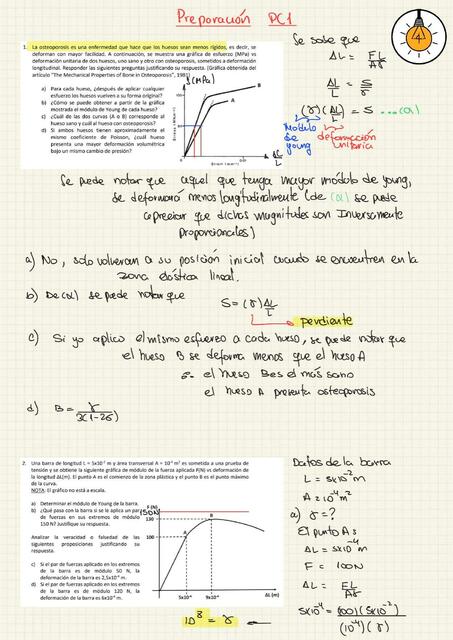 Preparación PC1
1. La osteoporosis es una enfermedad que hace que los huesos sean menos rígidos, es decir, se
deforman con mayor facilidad. A continuación, se muestra una gráfica de esfuerzo (MPa) vs
deformación unitaria de dos huesos, uno sano y otro con osteoporosis, sometidos a deformación
longitudinal. Responder las siguientes preguntas justificando su respuesta. (Gráfica obtenida del
artículo "The Mechanical Properties of Bone in Osteoporosis", 1981)
a) Para cada hueso, ¿después de aplicar cualquier
esfuerzo los huesos vuelven a su forma original?
b) ¿Cómo se puede obtener a partir de la gráfica
mostrada el módulo de Young de cada hueso?
c) ¿Cuál de las dos curvas (A o B) corresponde al
hueso sano y cuál al hueso con osteoporosis?
d) Si ambos huesos tienen aproximadamente el
mismo coeficiente de Poisson, ¿cuál hueso
presenta una mayor deformación volumétrica
bajo un mismo cambio de presión?
(MPa)
B
A
ΔL/L
Se sabe que
ΔL = FL/AY
ΔL/L = S/Y
(Y)(ΔL/L) = S ...(α)
Módulo de young
deformación unitaria
Se puede notar que aquel que tenga mayor módulo de young,
se deformará menos longitudinalmente (de (α) se puede
apreciar que dichas magnitudes son Inversamente
proporcionales)
a) No, solo volveran a su posición inicial cuando se encuentren en la
zona elástica lineal.
b) De (α) se puede notar que S = (Y) ΔL/L
pendiente
c) Si yo aplico el mismo esfuerzo a cada hueso, se puede notar que
el hueso B se deforma menos que el hueso A
∴ el hueso B es el más sano
el hueso A presenta osteoporosis
d) B = Y/3(1-2σ)
2. Una barra de longitud L = 5x10⁻² m y área transversal A = 10⁻⁴ m² es sometida a una prueba de
tensión y se obtiene la siguiente gráfica de módulo de la fuerza aplicada F(N) vs deformación de
la longitud ΔL(m). El punto A es el comienzo de la zona plástica y el punto B es el punto máximo
de la curva.
NOTA: El gráfico no está a escala.
a) Determinar el módulo de Young de la barra.
b) ¿Qué pasa con la barra si se le aplica un par
de fuerzas en sus extremos de módulo
150 N? Justifique su respuesta.
Analizar la veracidad o falsedad de las
siguientes proposiciones justificando su
respuesta.
c) Si el par de fuerzas aplicado en los extremos
de la barra es de módulo 50 N, la
deformación de la barra es 2,5x10⁻⁴ m.
d) Si el par de fuerzas aplicado en los extremos
de la barra es de módulo 120 N, la
deformación de la barra es 6x10⁻⁴ m.
F (N)
(150N)
130
100
A
B
5x10⁻⁴
9x10⁻⁴
ΔL (m)
10⁸ = Y
Datos de la barra
L = 5x10⁻² m
A = 10⁻⁴ m²
a) Y = ?
El punto A:
ΔL = 5x10⁻⁴ m
F = 100N
ΔL = FL/AY
5x10⁻⁴ = (100)(5x10⁻²)/(10⁻⁴)(Y)